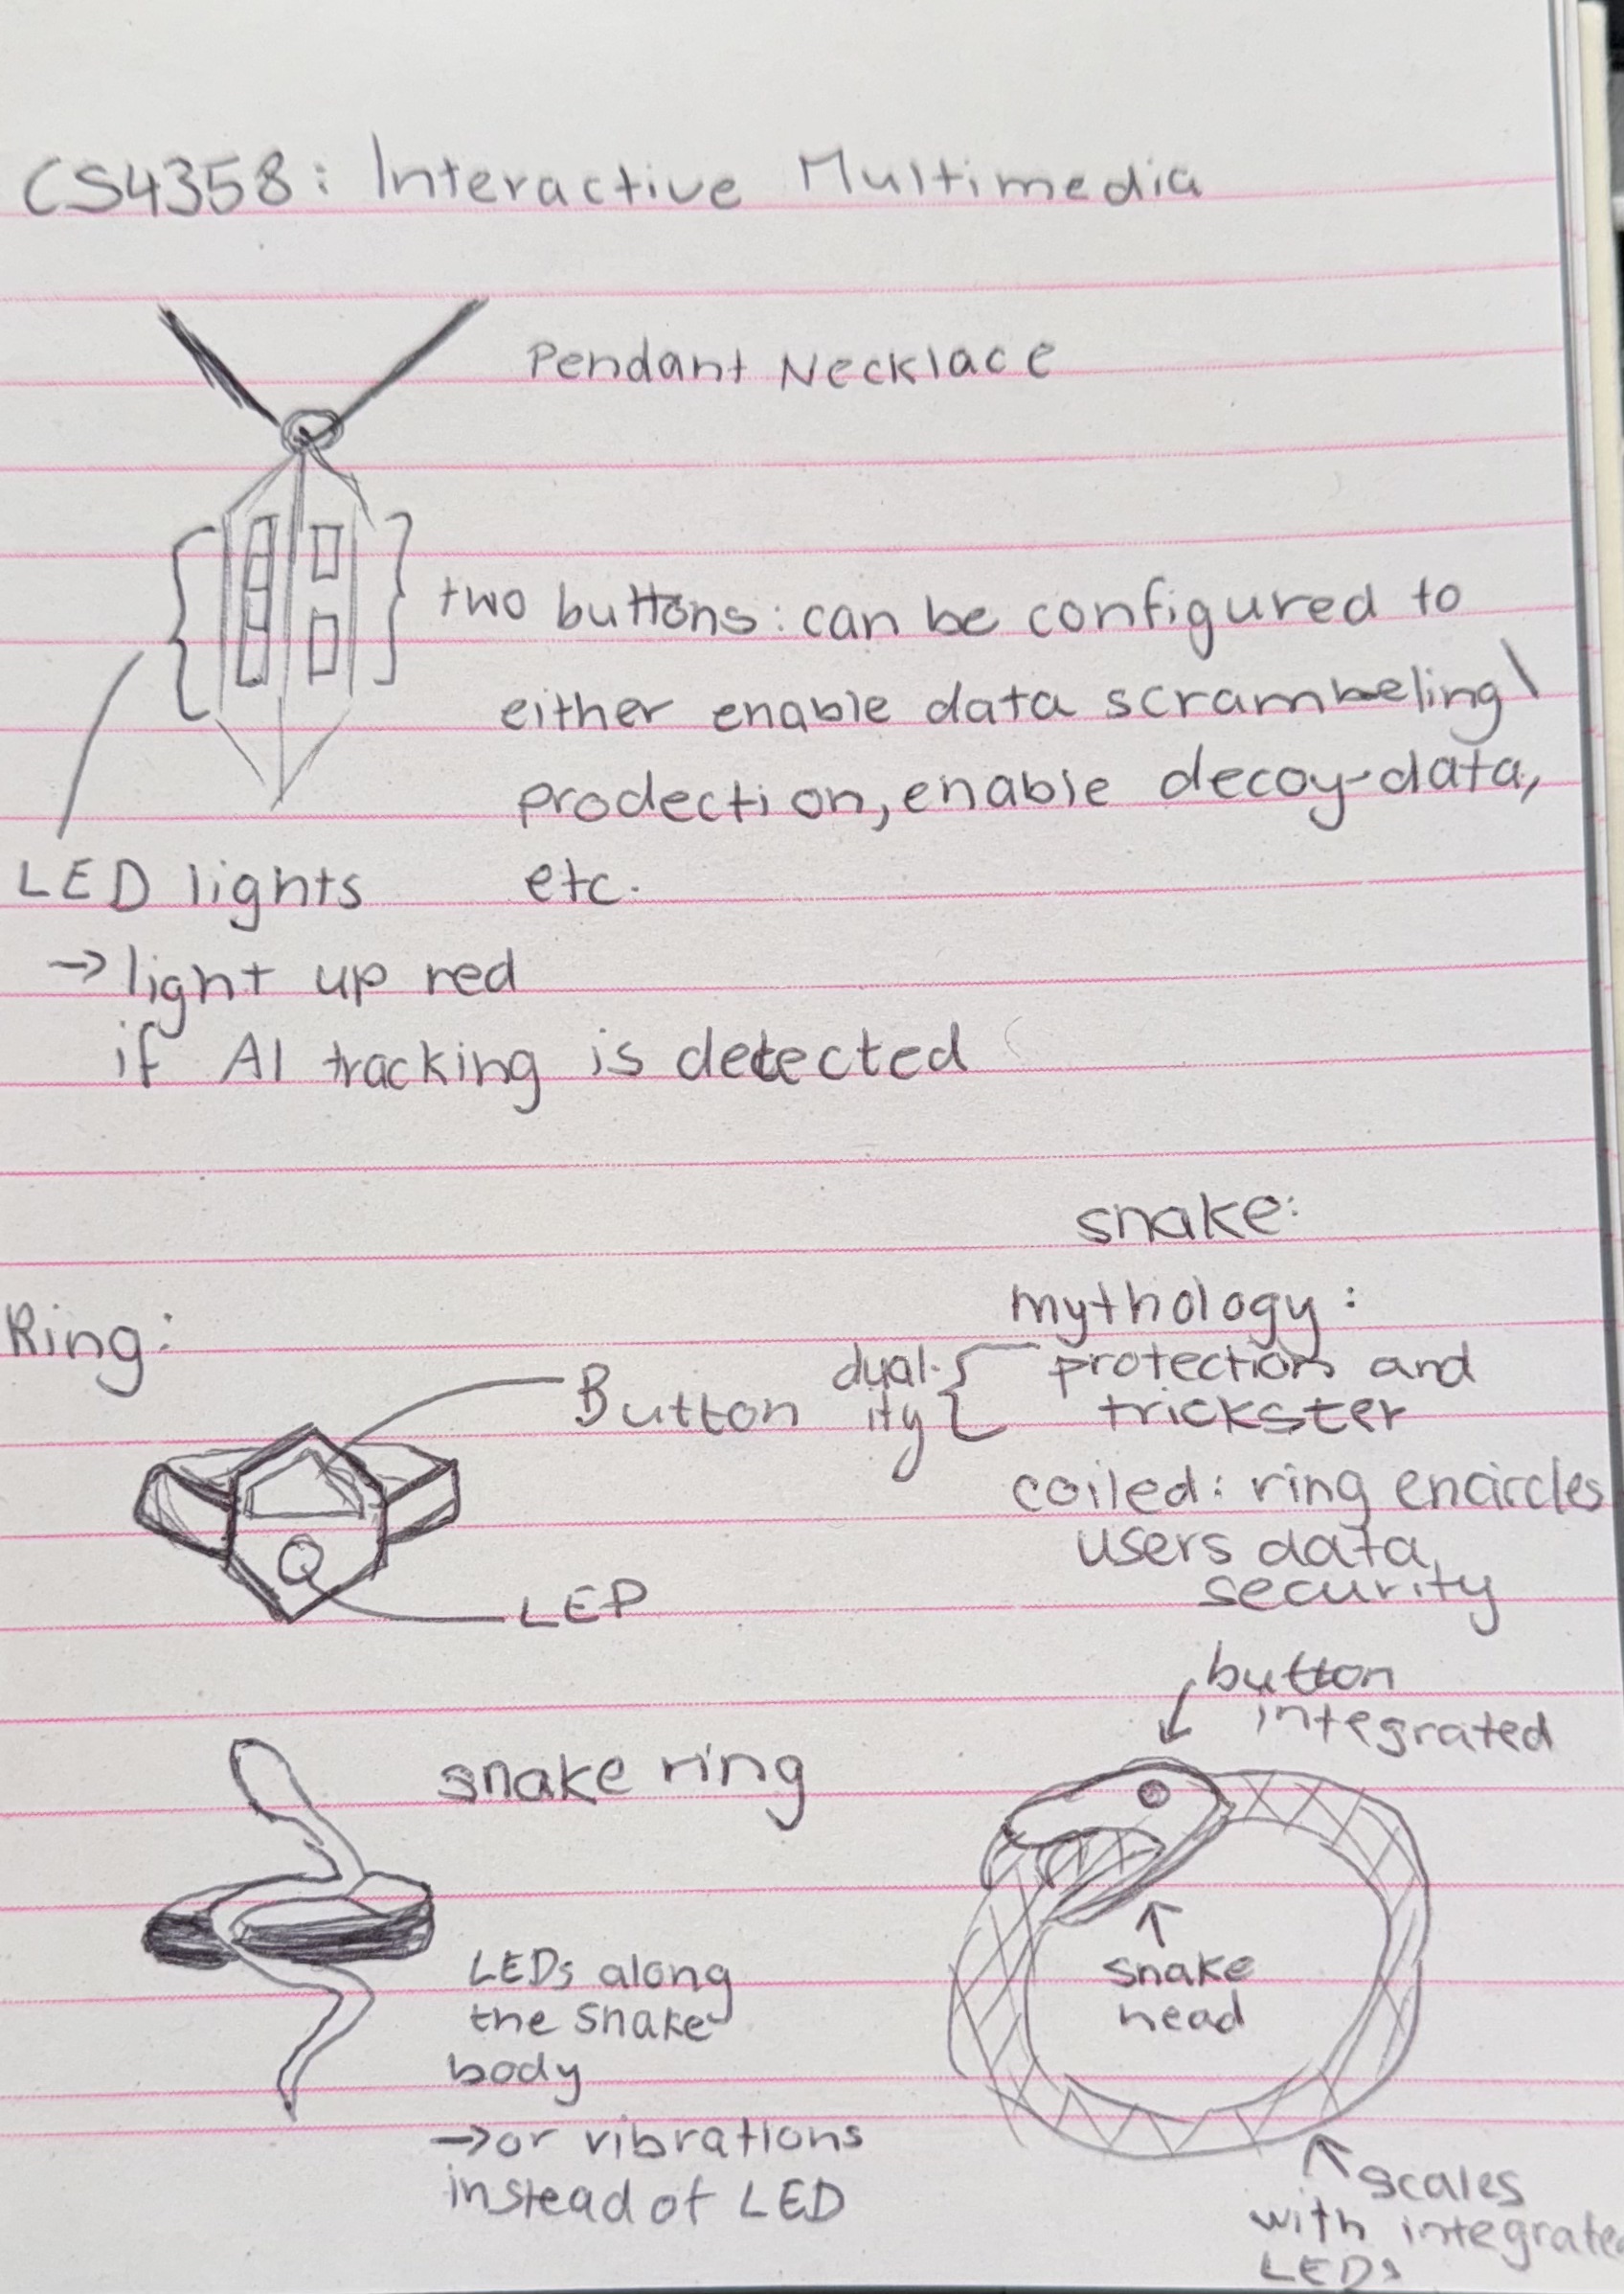 CS4358: Interactive Multimedia
Pendant Necklace
two buttons: can be configured to
either enable data scrambeling\
prodection, enable decoy-data,
etc.
LED lights
→ light up red
if AI tracking is detected
snake:
mythology:
dual-
ity
protection and
trickster
coiled: ring encircles
users data,
security
Ring:
Button
LED
snake ring
LEDs along
the snake
body
→ or vibrations
instead of LED
button
integrated
snake
head
scales
with integrated
LEDs